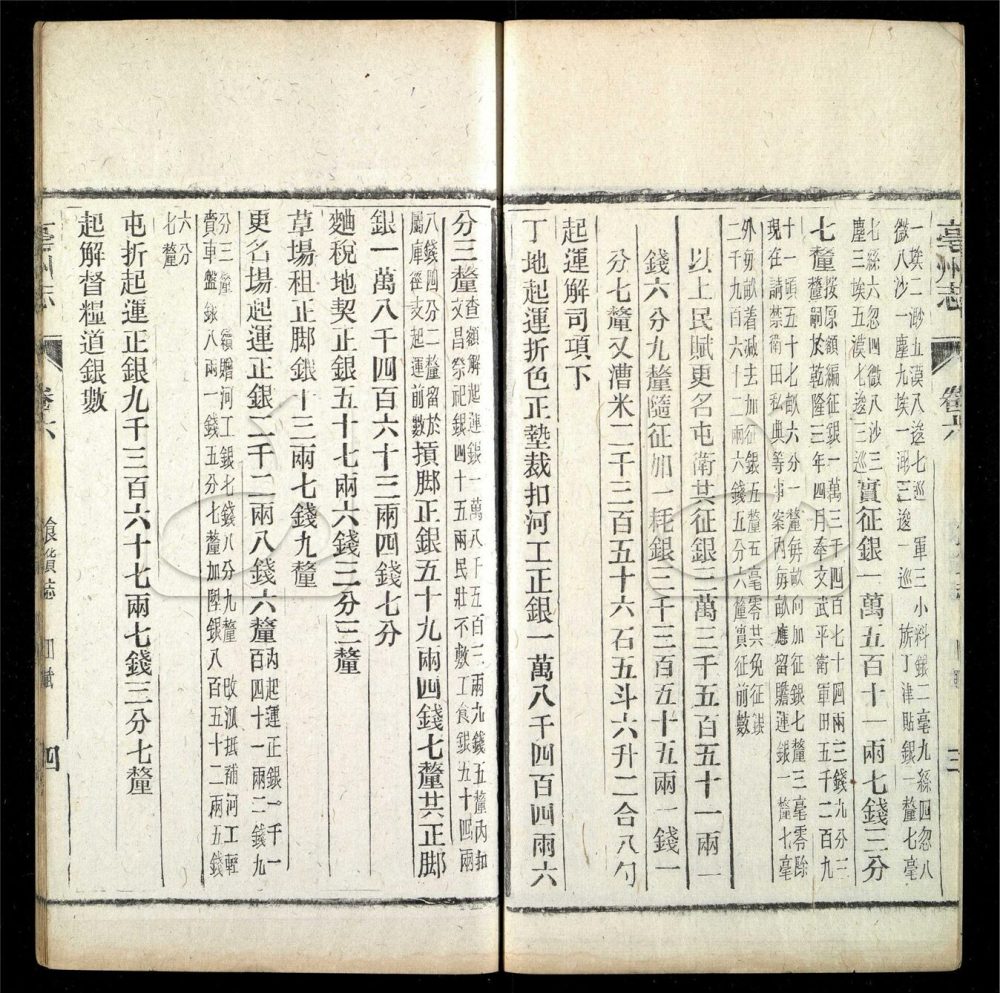 亳州志
卷六
三
一埃二渺五漠八逡七巡　軍三小料銀二毫九絲四忽八
微八沙一塵九埃一渺三逡一巡　旂丁津貼銀一釐七毫
七絲六忽四微八沙三
塵三埃五漠七逡三巡
實征銀一萬五百十一兩七錢三分
七釐
按原額編征銀一萬三千四百七十四兩三錢九分三
釐嗣於乾隆三年四月奉文武平衛軍田五千二百九
十一頃五十七畝六分一釐每畝向加征銀七釐三毫零除
現在請禁衛田私典等事案內每畝應留贍運銀一釐七毫
外每畝着减去加征銀五釐五毫零共免征銀
二千九百六十二兩六錢五分六釐實征前數
以上民賦更名屯衛共征銀三萬三千五百五十一兩一
錢六分九釐隨征加一耗銀三千三百五十五兩一錢一
分七釐又漕米二千三百五十六石五斗六升二合八勺
起運解司項下
丁地起運折色正墊裁扣河工正銀一萬八千四百四兩六
分三釐
查額解起運銀一萬八千五百三兩九錢五釐內扣
文昌祭祀銀四十五兩民壯不敷工食銀五十四兩
八錢四分二釐留於
屬庫徑支起運前數
摃脚正銀五十九兩四錢七釐共正脚
銀一萬八千四百六十三兩四錢七分
麯稅地契正銀五十七兩六錢三分三釐
草場租正脚銀十三兩七錢九釐
更名場起運正銀二千二兩八錢六釐
內起運正銀一千一
百四十一兩二錢九
分三釐　額贍河工銀七錢八分九釐　改淤抵補河工輕
賫車盤銀八兩一錢五分七釐加陞銀八百五十二兩五錢
六分
七釐
屯折起運正銀九千三百六十七兩七錢三分七釐
起解督糧道銀數
亳州志
卷六
食貨志
田賦
四